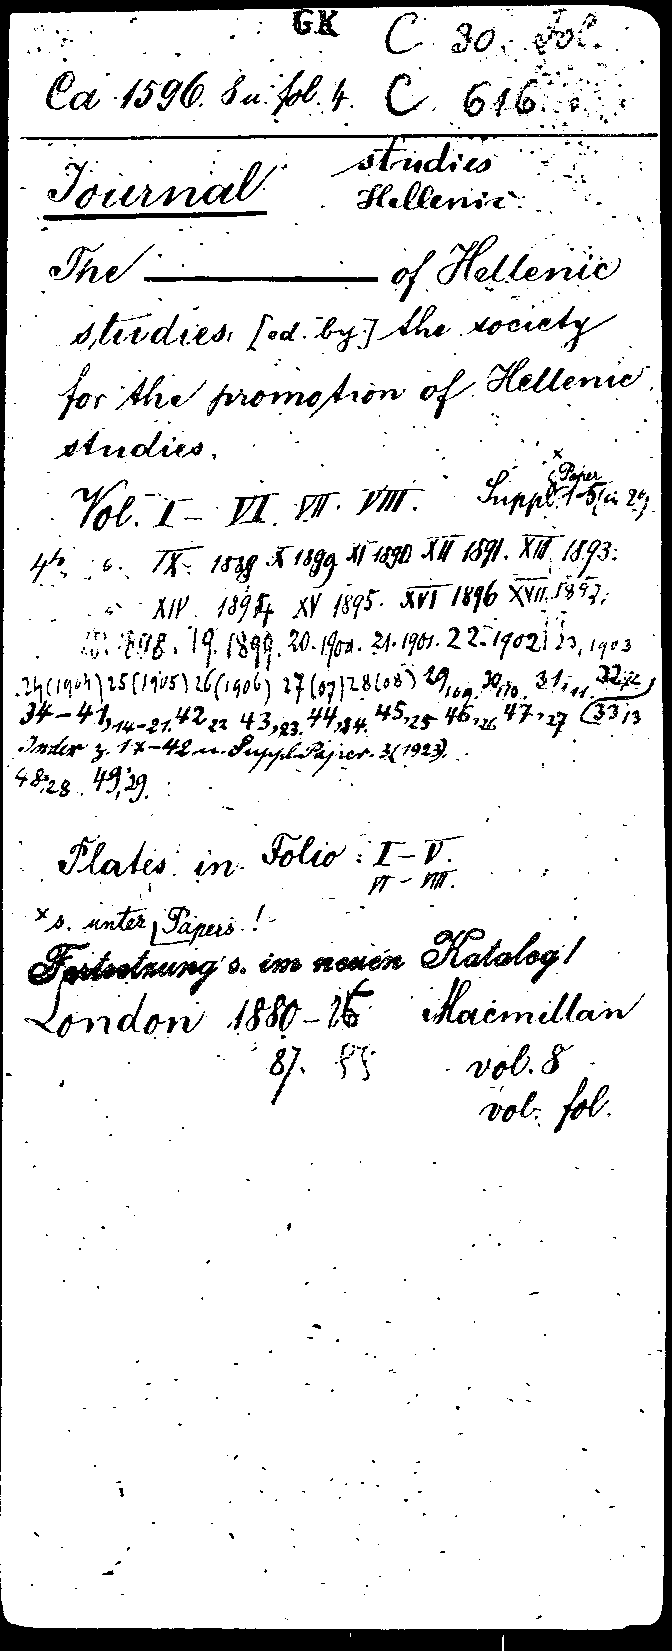 GK C 30. Fol.
Ca 1596. 8 u. fol. 4. C 616
Journal studies
Hellenic
The ——— of Hellenic
studies. [ed. by] the society
for the promotion of Hellenic
studies.
Vol. I – VI. VII. VIII. Suppl. Paper 1-5 (in 2°)
4to. IX. 1889 X 1899 XI 1890 XII 1891. XIII 1893.
XIV. 1894 XV 1895. XVI 1896 XVII. 1897.
1898. 19. 1899. 20. 1900. 21. 1901. 22. 1902 23, 1903
24 (1904) 25 (1905) 26 (1906) 27 (07) 28 (08) 29,09. 30,10. 31,11. 32,12
34–41,14–21. 42,22 43,23. 44,24. 45,25 46,26 47,27 (33,13
Index z. 17–42 u. Suppl. Paper. 3 (1923).
48,28. 49,29.
Plates in Folio: I–V.
VI–VIII.
× s. unter Papers!
Fortsetzung s. im neuen Katalog!
London 1880– Macmillan
87. vol. 8
vol. fol.